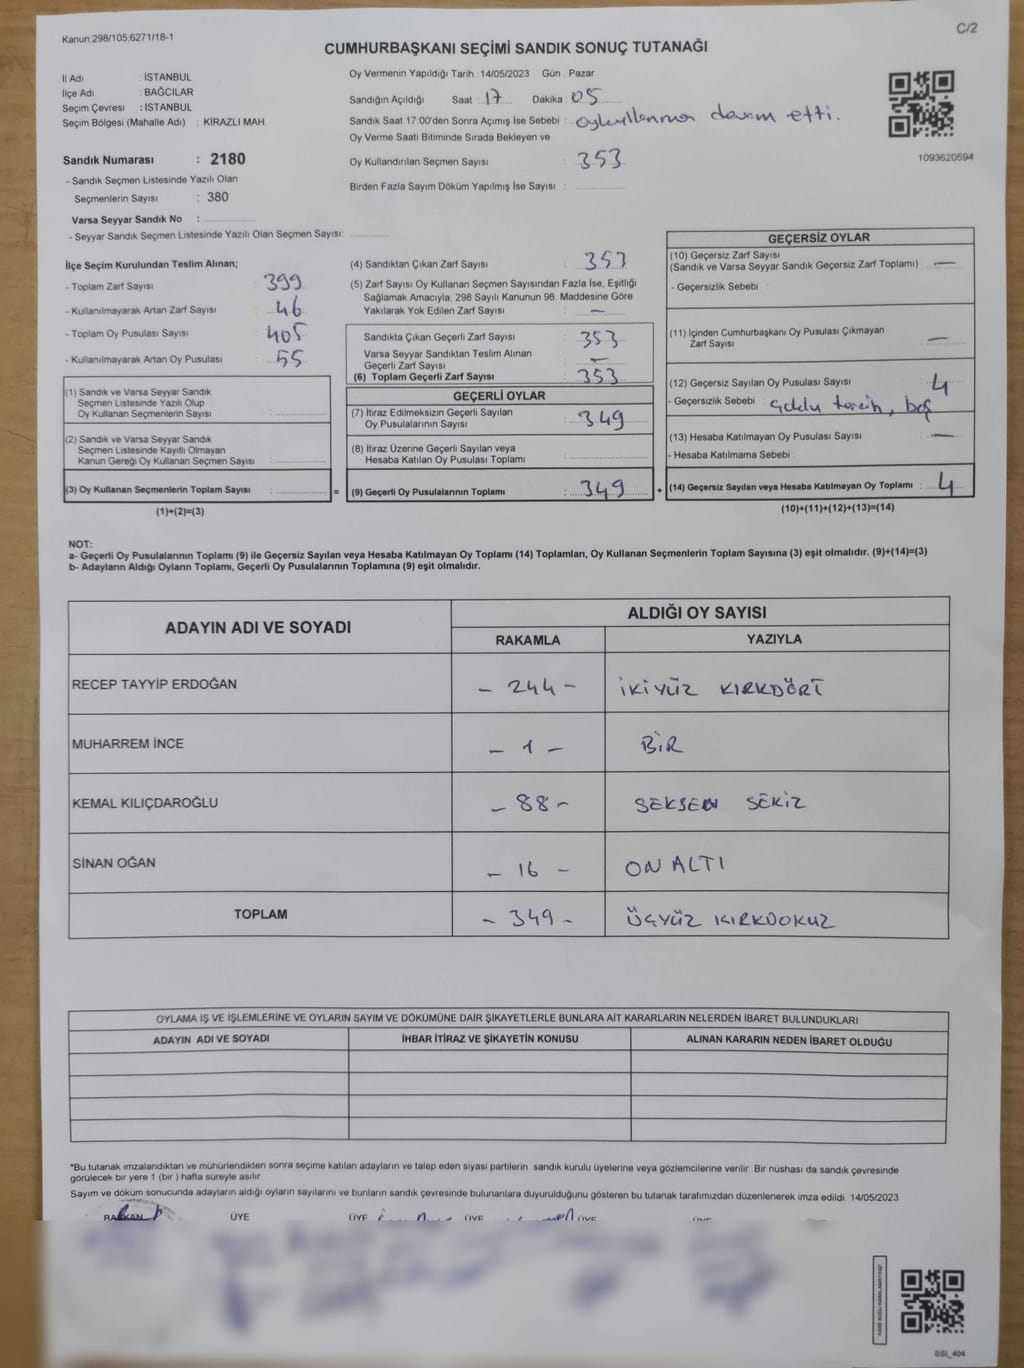 Kanun:298/105;6271/18-1
C/2
CUMHURBAŞKANI SEÇİMİ SANDIK SONUÇ TUTANAĞI
İl Adı : İSTANBUL
İlçe Adı : BAĞCILAR
Seçim Çevresi : İSTANBUL
Seçim Bölgesi (Mahalle Adı) : KİRAZLI MAH.
Sandık Numarası : 2180
- Sandık Seçmen Listesinde Yazılı Olan
Seçmenlerin Sayısı : 380
Varsa Seyyar Sandık No :
- Seyyar Sandık Seçmen Listesinde Yazılı Olan Seçmen Sayısı:
Oy Vermenin Yapıldığı Tarih : 14/05/2023 Gün : Pazar
Sandığın Açıldığı Saat : 17 Dakika : 05
Sandık Saat 17:00'den Sonra Açımış İse Sebebi : oykullanma devam etti.
Oy Verme Saati Bitiminde Sırada Bekleyen ve
Oy Kullandırılan Seçmen Sayısı : 353
Birden Fazla Sayım Döküm Yapılmış İse Sayısı :
1093620594
İlçe Seçim Kurulundan Teslim Alınan;
- Toplam Zarf Sayısı : 399
- Kullanılmayarak Artan Zarf Sayısı : 46
- Toplam Oy Pusulası Sayısı : 405
- Kullanılmayarak Artan Oy Pusulası : 55
(1) Sandık ve Varsa Seyyar Sandık
Seçmen Listesinde Yazılı Olup
Oy Kullanan Seçmenlerin Sayısı :
(2) Sandık ve Varsa Seyyar Sandık
Seçmen Listesinde Kayıtlı Olmayan
Kanun Gereği Oy Kullanan Seçmen Sayısı :
(3) Oy Kullanan Seçmenlerin Toplam Sayısı : =
(1)+(2)=(3)
(4) Sandıktan Çıkan Zarf Sayısı : 353
(5) Zarf Sayısı Oy Kullanan Seçmen Sayısından Fazla İse, Eşitliği
Sağlamak Amacıyla, 298 Sayılı Kanunun 98. Maddesine Göre
Yakılarak Yok Edilen Zarf Sayısı : —
Sandıkta Çıkan Geçerli Zarf Sayısı : 353
Varsa Seyyar Sandıktan Teslim Alınan
Geçerli Zarf Sayısı : —
(6) Toplam Geçerli Zarf Sayısı : 353
GEÇERLİ OYLAR
(7) İtiraz Edilmeksizin Geçerli Sayılan
Oy Pusulalarının Sayısı : 349
(8) İtiraz Üzerine Geçerli Sayılan veya
Hesaba Katılan Oy Pusulası Toplamı :
(9) Geçerli Oy Pusulalarının Toplamı : 349 +
GEÇERSİZ OYLAR
(10) Geçersiz Zarf Sayısı
(Sandık ve Varsa Seyyar Sandık Geçersiz Zarf Toplamı) : —
- Geçersizlik Sebebi :
(11) İçinden Cumhurbaşkanı Oy Pusulası Çıkmayan
Zarf Sayısı : —
(12) Geçersiz Sayılan Oy Pusulası Sayısı : 4
- Geçersizlik Sebebi : çoklu tercih, boş
(13) Hesaba Katılmayan Oy Pusulası Sayısı : —
- Hesaba Katılmama Sebebi :
(14) Geçersiz Sayılan veya Hesaba Katılmayan Oy Toplamı : 4
(10)+(11)+(12)+(13)=(14)
NOT:
a- Geçerli Oy Pusulalarının Toplamı (9) ile Geçersiz Sayılan veya Hesaba Katılmayan Oy Toplamı (14) Toplamları, Oy Kullanan Seçmenlerin Toplam Sayısına (3) eşit olmalıdır. (9)+(14)=(3)
b- Adayların Aldığı Oyların Toplamı, Geçerli Oy Pusulalarının Toplamına (9) eşit olmalıdır.
ADAYIN ADI VE SOYADI
ALDIĞI OY SAYISI
RAKAMLA YAZIYLA
RECEP TAYYİP ERDOĞAN - 244 - İKİYÜZ KIRKDÖRT
MUHARREM İNCE - 1 - BİR
KEMAL KILIÇDAROĞLU - 88 - SEKSEN SEKİZ
SİNAN OĞAN - 16 - ON ALTI
TOPLAM - 349 - ÜÇYÜZ KIRKDOKUZ
OYLAMA İŞ VE İŞLEMLERİNE VE OYLARIN SAYIM VE DÖKÜMÜNE DAİR ŞİKAYETLERLE BUNLARA AİT KARARLARIN NELERDEN İBARET BULUNDUKLARI
ADAYIN ADI VE SOYADI İHBAR İTİRAZ VE ŞİKAYETİN KONUSU ALINAN KARARIN NEDEN İBARET OLDUĞU
*Bu tutanak imzalandıktan ve mühürlendikten sonra seçime katılan adayların ve talep eden siyasi partilerin sandık kurulu üyelerine veya gözlemcilerine verilir. Bir nüshası da sandık çevresinde
görülecek bir yere 1 (bir ) hafta süreyle asılır.
Sayım ve döküm sonucunda adayların aldığı oyların sayılarını ve bunların sandık çevresinde bulunanlara duyurulduğunu gösteren bu tutanak tarafımızdan düzenlenerek imza edildi. 14/05/2023
BAŞKAN ÜYE ÜYE ÜYE ÜYE ÜYE
SSI_404